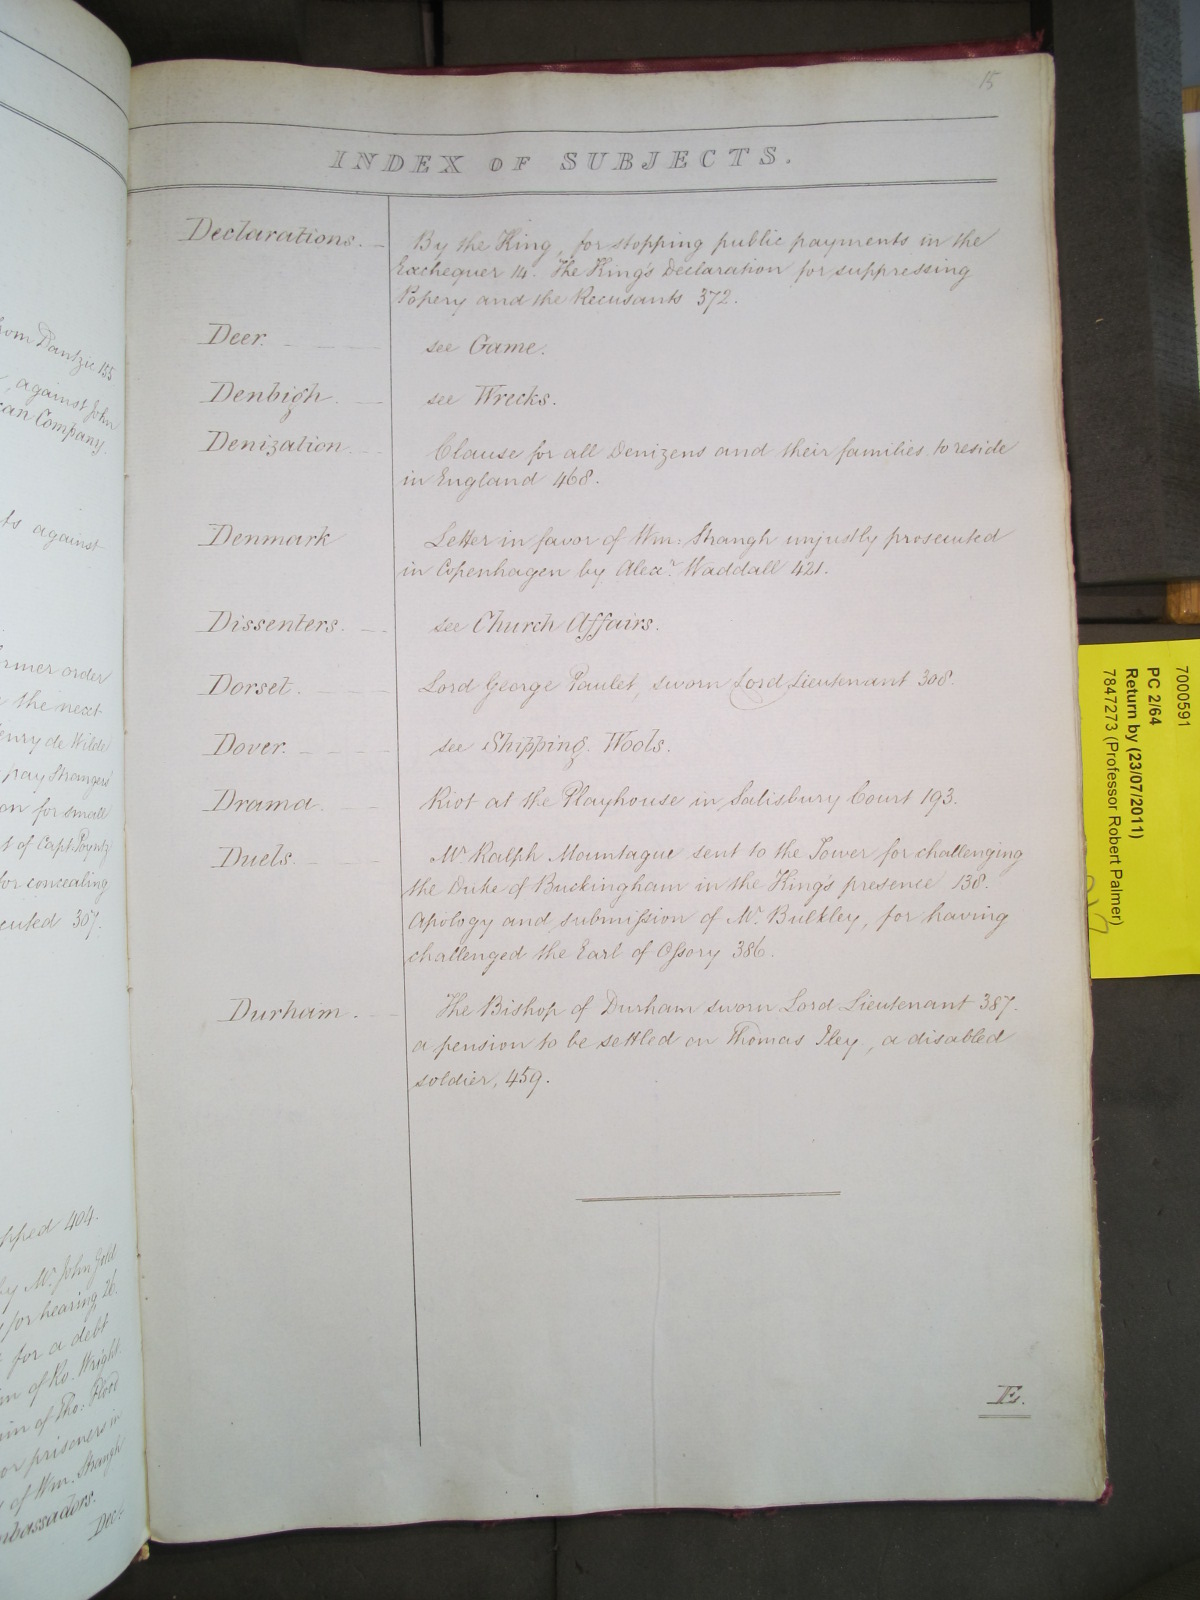 from Dantzic 155
against John
can Company.
ts against
ormer order
the next
enry de Wilde
pay Strangers
on for small
t of Capt. Poyntz
for concealing
cuted 367.
pped 404.
by Mr. John Gold
for hearing 26.
for a debt
of Ro. Wright.
of Tho: Flood
or prisoners in
of Wm. Strangh
mbassadors.
Dec:
15
INDEX OF SUBJECTS.
Declarations. By the King, for stopping public payments in the
Exchequer 14. The King's Declaration for suppressing
Popery and the Recusants 372.
Deer. see Game.
Denbigh. see Wrecks.
Denization. Clause for all Denizens and their families to reside
in England 468.
Denmark Letter in favor of Wm: Strangh unjustly prosecuted
in Copenhagen by Alexr. Waddall 421.
Dissenters. see Church Affairs.
Dorset. Lord George Paulet, sworn Lord Lieutenant 308.
Dover. see Shipping. Wools.
Drama. Riot at the Playhouse in Salisbury Court 193.
Duels. Mr. Ralph Mountague sent to the Tower for challenging
the Duke of Buckingham in the King's presence 138.
Apology and submission of Mr. Bulkley, for having
challenged the Earl of Ossory 386.
Durham. The Bishop of Durham sworn Lord Lieutenant 387.
a pension to be settled on Thomas Iley, a disabled
soldier, 459.
E.
7000591
PC 2/64
Return by (23/07/2011)
7847273 (Professor Robert Palmer)